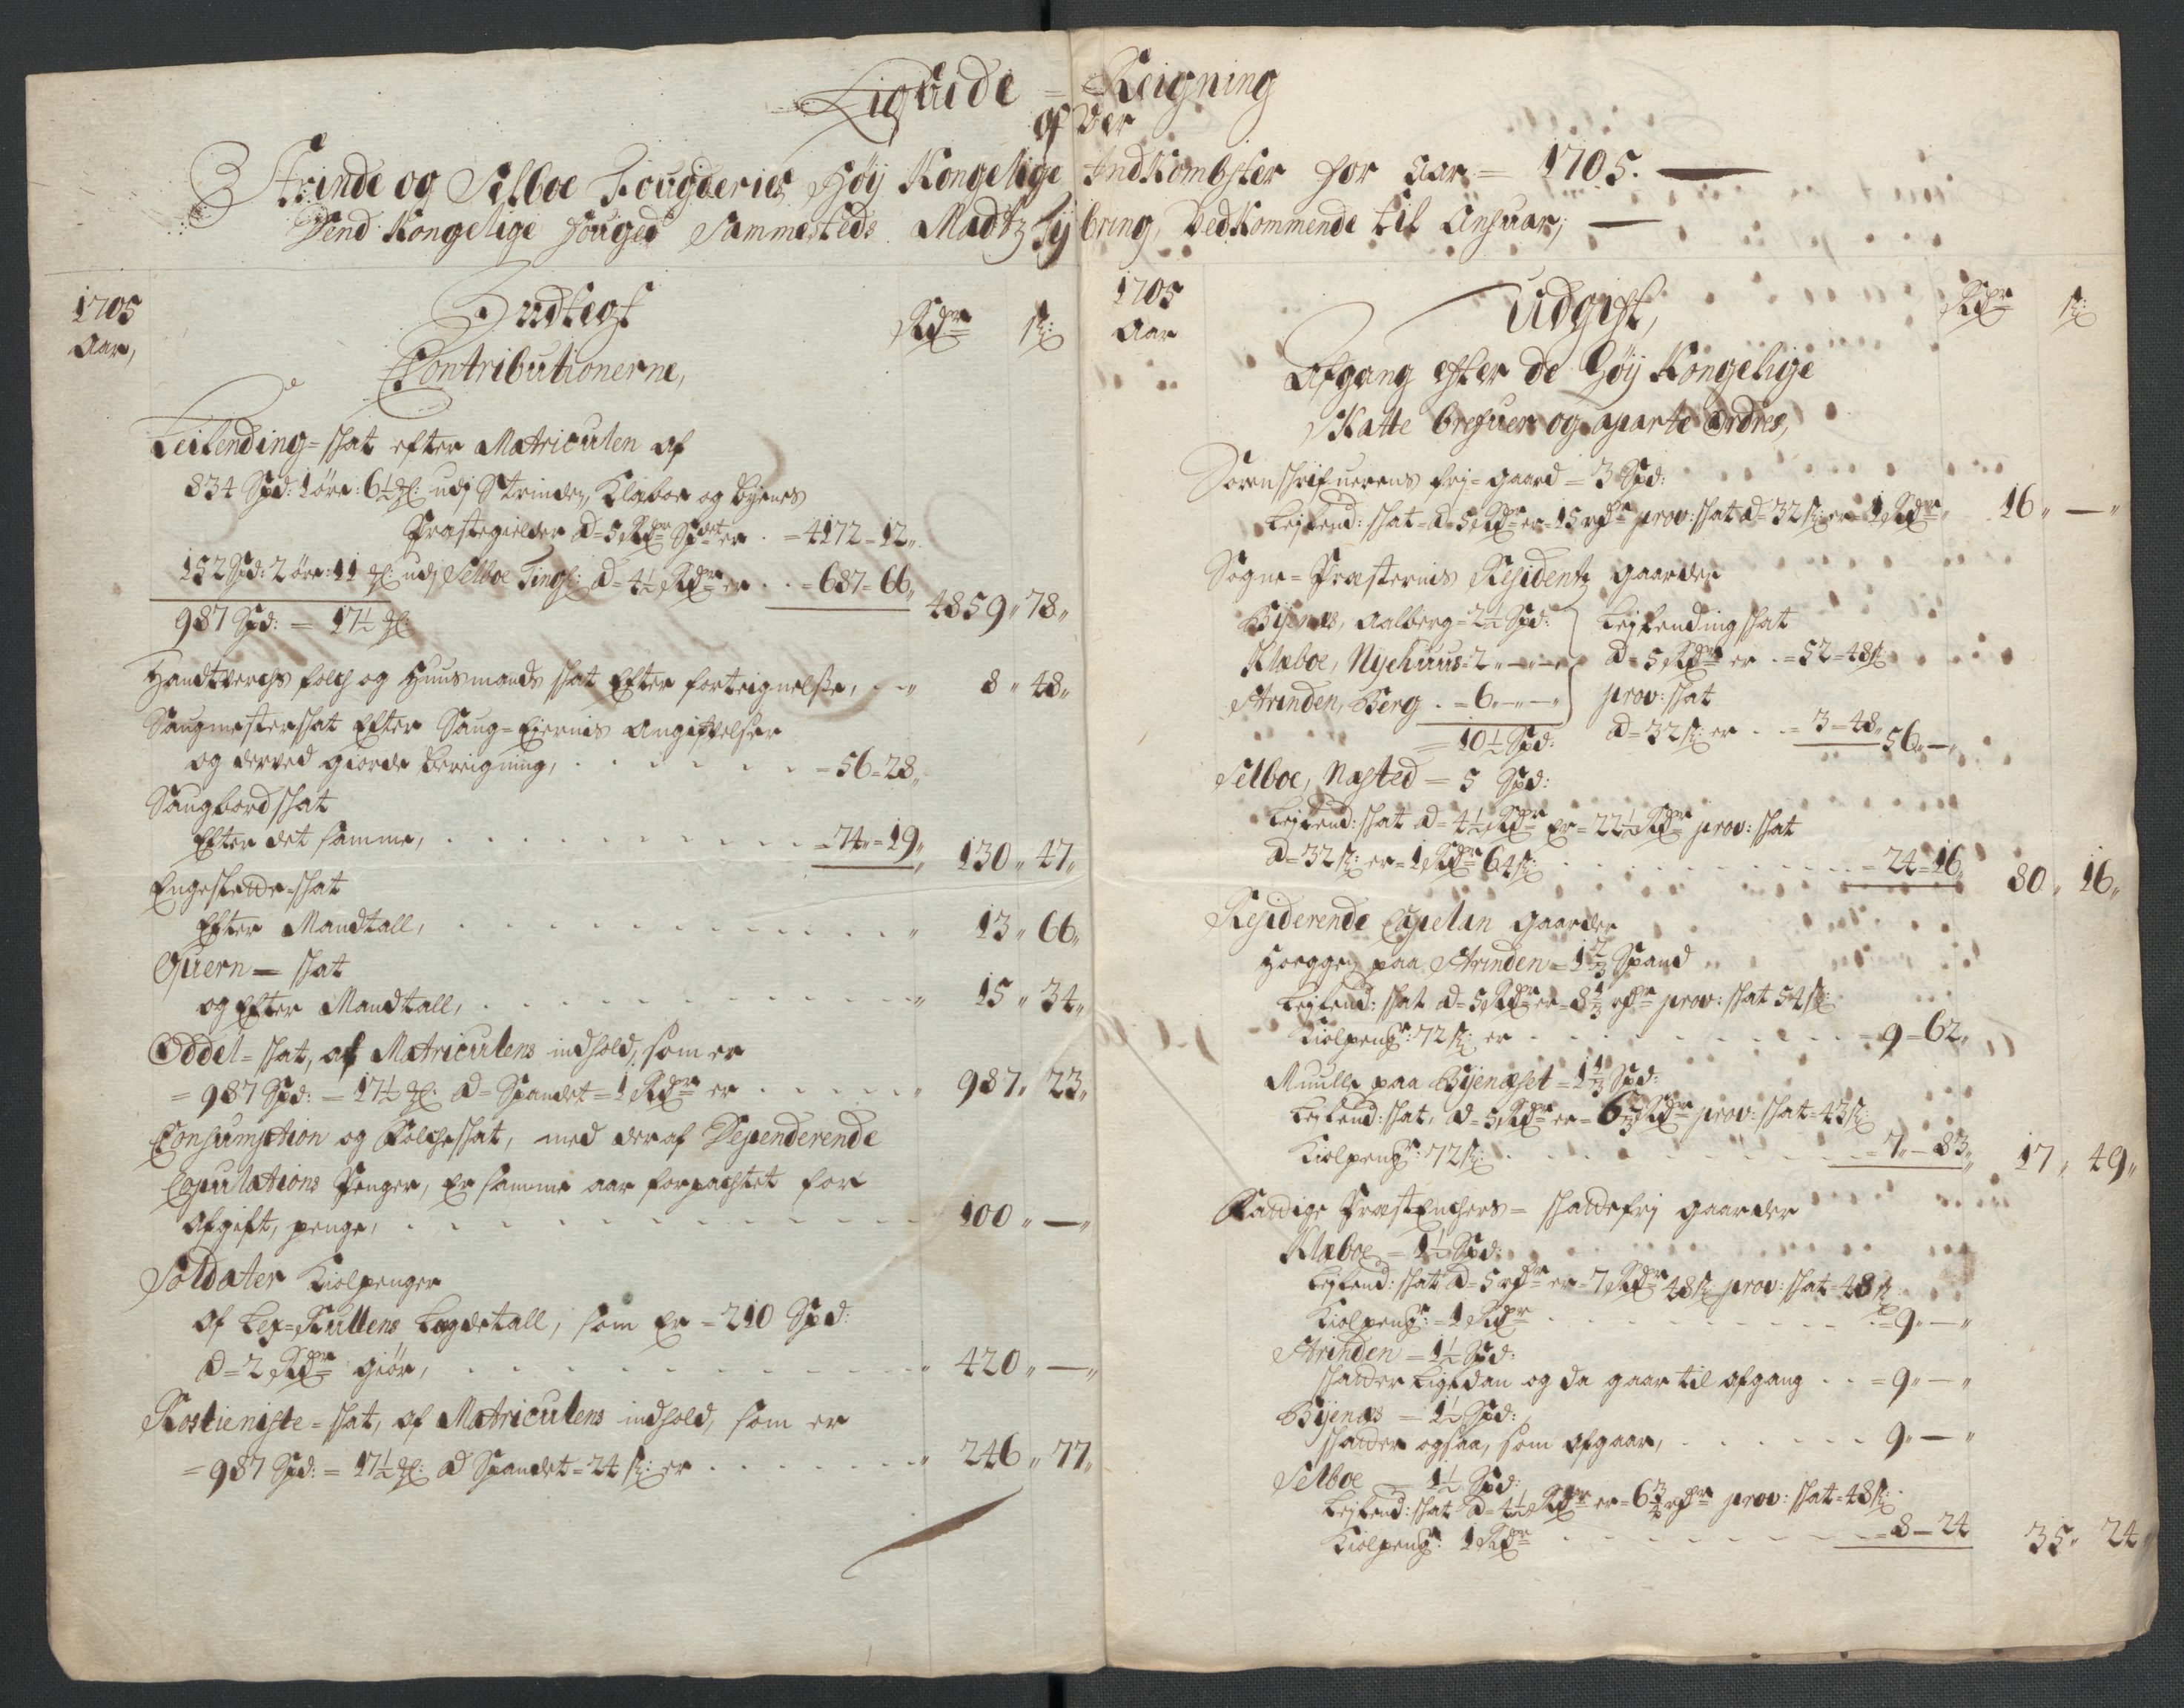 Liqvide = Reigning
af Der
Strinde og Selboe Fougderies Høij Kongelige Indkombster for Aar = 1705.
Dend Kongelige fouged Sammesteds Madtz Tybring, Vedkommende til Ansuar,
1705
Aar,
Indtegt
Rdr ß:
Contributionerne,
Leilending-skat efter Matriculen af
834 Spd: 1 öre: 6½ Ml: udj Strinden, Klæboe og Byenes
Præstegielder a=5 Rdr Spdet er = 4172=12„
152 Spd: 2 öre: 11 Ml: udj Selboe Tingl: a=4½ Rdr er = 687=66„ 4859„ 78„
987 Spd: = 17½ Ml:
Handtverchs folch og Huusmands skat Efter forteignelsse, 8„ 48„
Saugmesterskat Efter Saug=Eiernis Angifvelser
og derved giorde Bereigning, =56=28„
Saugbordskat
Efter det samme, =74„=19„ 130„ 47„
Engeslette=skat
Efter Mandtall, 13„ 66„
Qvern=skat
og Efter Mandtall, 15„ 34„
Oddel=skat, af Matriculens indhold, som er
=987 Spd: = 17½ Ml: a=Spandet=1 Rdr er 987„ 23„
Consumption og Folcheskat, med deraf Dependerende
Copulations Penger, Er samme aar forpachtet for
afgift, penge, 100„ —„
Soldater Kiolpenger
af Leg=Rullens Lagdetall, som Er = 210 Spd:
a=2 Rdr giör, 420„ —„
Rostieniste=skat, af Matriculens indhold, som er
=987 Spd: = 17½ Ml: a Spandet=24 ß: er 246„ 77„
1705
Aar
Udgift,
Rdr ß:
Afgang efter de Høij Kongelige
Skatte brefuer og aparte Ordres,
Sorenskrifuerens frj=gaard = 3 Spd:
Lejlend: skat=a=5 Rdr er=15 rdr prov: skat a=32 ß: er=1 Rdr 16„ —„
Sogne=Præsternis Residentz gaarder
Byenæs, Aalberg=2½ Spd: Lejlendingskat
Klæboe, Nyehuus=2„—„—„ a=5 Rdr er =52=48ß
Strinden, Berg =6„—„—„ prov: skat
=10½ Spd: a=32ß: er =3=48„ 56„—„
Selboe, Næsted = 5 Spd:
Lejlend: skat a=4½ Rdr er=22½ Rdr prov: skat
a=32ß: er=1 Rdr 64ß: =24=16„ 80„ 16„
Residerende Capelan gaarder
Hoeggen paa Strinden=1⅔ Spand
Lejlend: skat a=5 Rdr er=8⅓ rdr prov: skat 54ß:
Kiolpengr: 72ß: er =9=62„
Muulle paa Byenæset=1⅓ Spd:
Lejlend: skat, a=5 Rdr er=6⅔ Rdr prov: skat=43ß:
Kiolpengr: 72ß: =7„—83„ 17„ 49„
Fattige PræstEnchers= skattefrj gaarder
Klæboe = 1½ Spd:
Lejlend: skat a=5 rdr er=7 Rdr 48ß: prov: skat=48ß
Kiolpengr:=1 Rdr =9„—„
Strinden = 1½ Spd:
skatter Ligedan og da gaar til afgang =9„—„
Byenæs = 1½ Spd:
skatter ogsaa, som afgaar, 9„—„
Selboe = 1½ Spd:
Lejlend: skat a=4½ Rdr er=6¾ rdr prov: skat=48ß:
Kiolpengr: 1 Rdr =8—24 35„ 24„